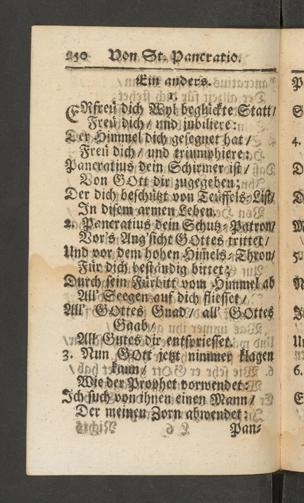 250 Von St. Pancratio.
Ein anders.
1.
ERfreü dich Wyl beglückte Statt/
Freü dich/ und jubiliere:
Der Himmel dich gesegnet hat/
Freü dich/ und triumphiere:
Pancratius dein Schirmer ist/
Von GOtt dir zugegeben:
Der dich beschützt von Teüffels-List/
In disem armen Leben.
2. Pancratius dein Schutz-Patron/
Vor's Ang'sicht GOttes trittet/
Und vor dem hohen Him̃els-Thron/
Für dich beständig bittet:
Durch sein Fürbitt vom Himmel ab
All' Seegen auf dich fliesset/
All' GOttes Gnad/ all' GOttes
Gaab/
All' Gutes dir entspriesset.
3. Nun GOtt jetzt nimmer klagen
kann/
Wie der Prophet vorwendet:
Ich such von ihnen einen Mann/
Der meinen Zorn abwendet:
Pan-